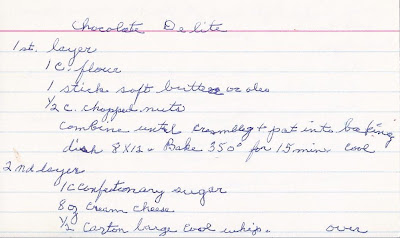 Chocolate Delite
1st. layer
1 C. flour
1 stick soft butter or oleo
1/2 c. chopped nuts
Combine until crumbly + pat into baking
dish 8X12. Bake 350° for 15 min. Cool
2nd layer
1 C confectionary sugar
8 oz cream cheese
1/2 Carton large Cool whip. over